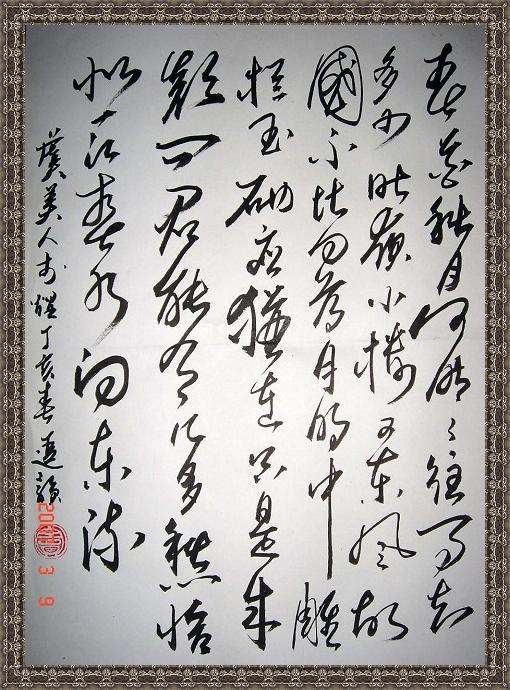 春花秋月何時了往事知
多少昨夜小樓又東風故
國不堪回首月明中雕
欄玉砌應猶在只是朱
顏问君能有几多愁恰
似一江春水向東流
虞美人李煜丁亥春
3 9